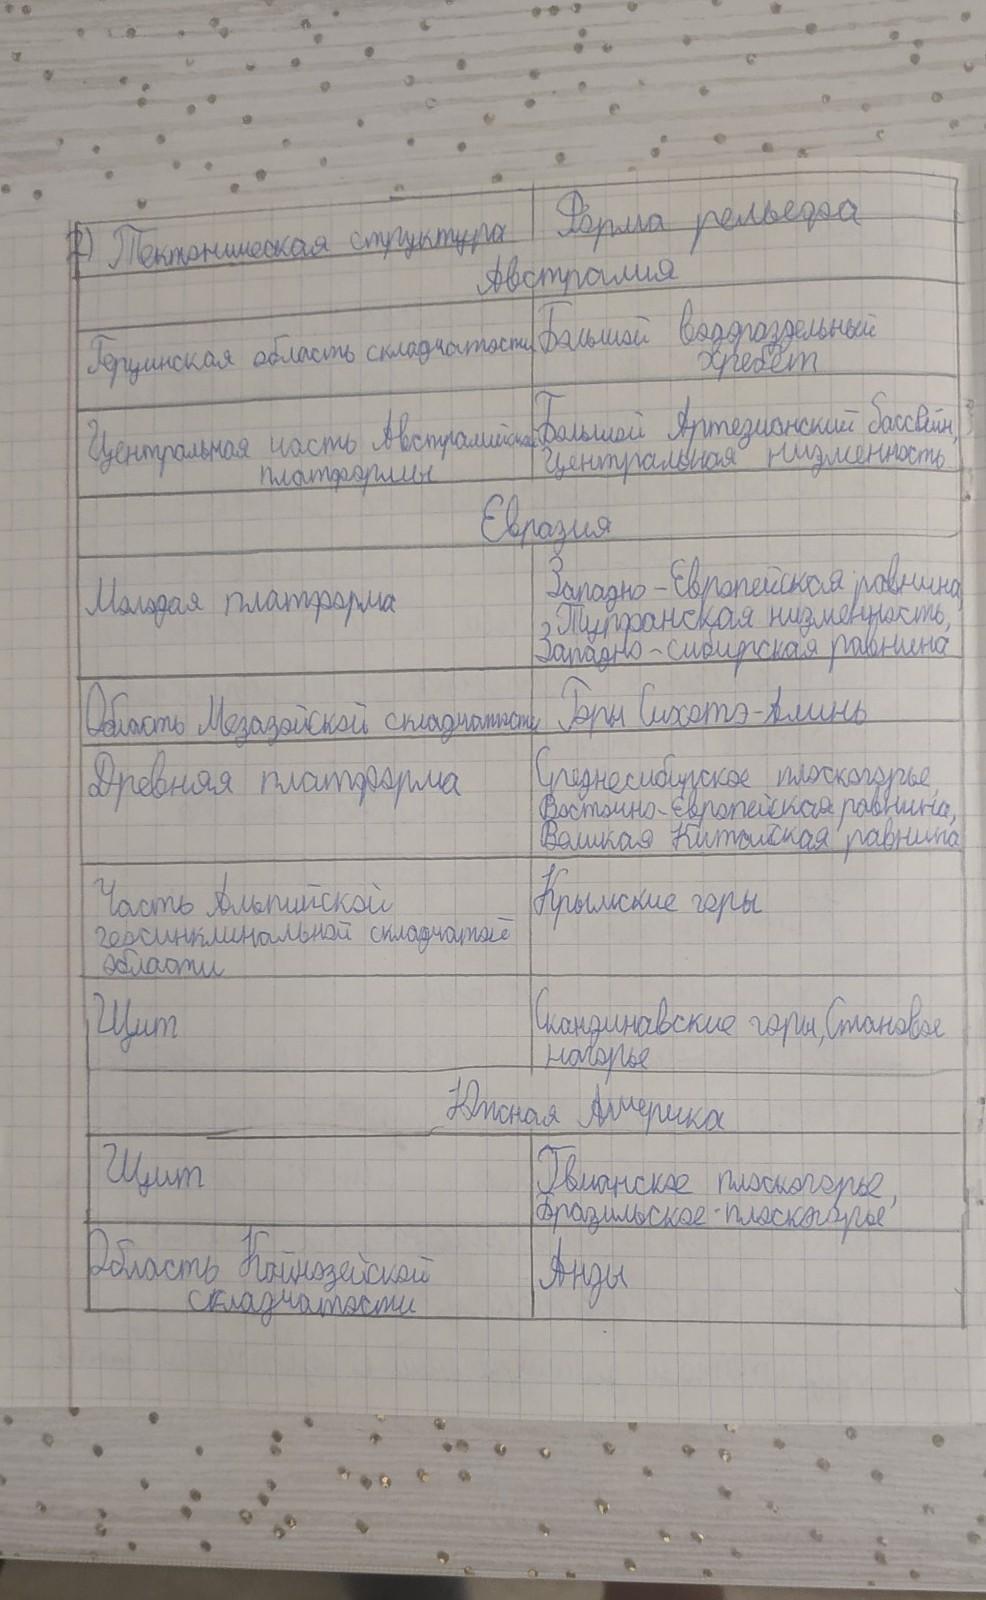 2) Тектоническая структура Форма рельефа
Австралия
Герцинская область складчатости Большой водораздельный
хребет
Центральная часть Австралийской Большой Артезианский бассейн,
платформы Центральная низменность
Евразия
Молодая платформа Западно-Европейская равнина,
Туранская низменность,
Западно-сибирская равнина
Область Мезазойской складчатости Горы Сихотэ-Алинь
Древняя платформа Среднесибирское плоскогорье,
Восточно-Европейская равнина,
Великая Китайская равнина
Часть Альпийской Крымские горы
геосинклинальной складчатой
области
Щит Скандинавские горы, Становое
нагорье
Южная Америка
Щит Гвианское плоскогорье,
Бразильское-плоскогорье
Область Кайнозейской Анды
складчатости